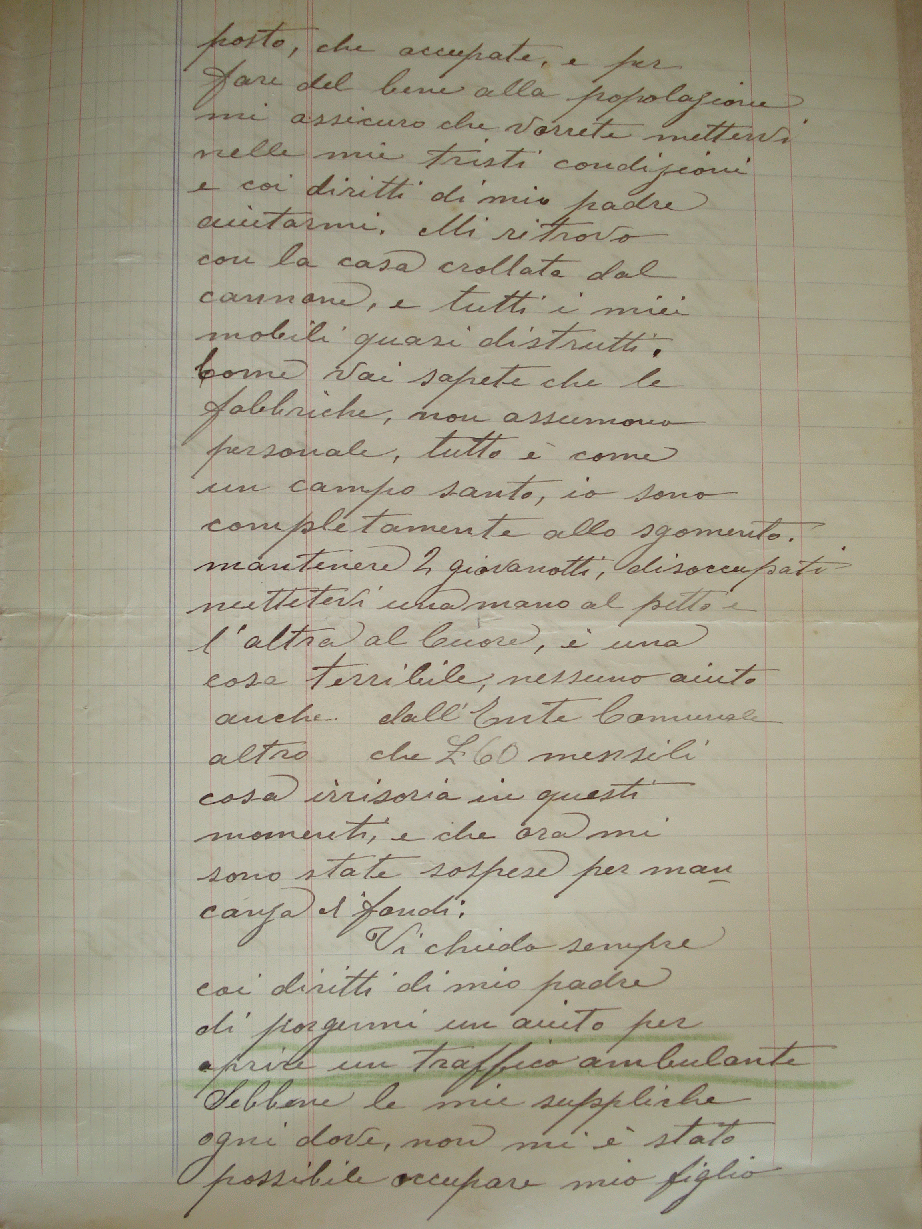 posto, che accupate, e per
fare del bene alla popolazione
mi assicuro che vorrete mettervi
nelle mie tristi condizioni
e coi diritti di mio padre
aiutarmi. Mi ritrovo
con la casa crollata dal
cannone, e tutti i miei
mobili quasi distrutti.
Come vai sapete che le
fabbriche, non assumono
personale, tutto è come
un campo santo, io sono
completamente allo sgomento.
mantenere 2 giovanotti, disoccupati
mettetevi una mano al petto e
l'altra al Cuore, è una
cosa terribile, nessuno aiuto
anche dall'Ente Comunale
altro che £ 60 mensili
cosa irrisoria in questi
momenti, e che ora mi
sono state sospese per man
canza di fondi.
Vi chiedo sempre
coi diritti di mio padre
di porgermi un aiuto per
aprire un traffico ambulante
Sebbene le mie suppliche
ogni dove, non mi è stato
possibile occupare mio figlio